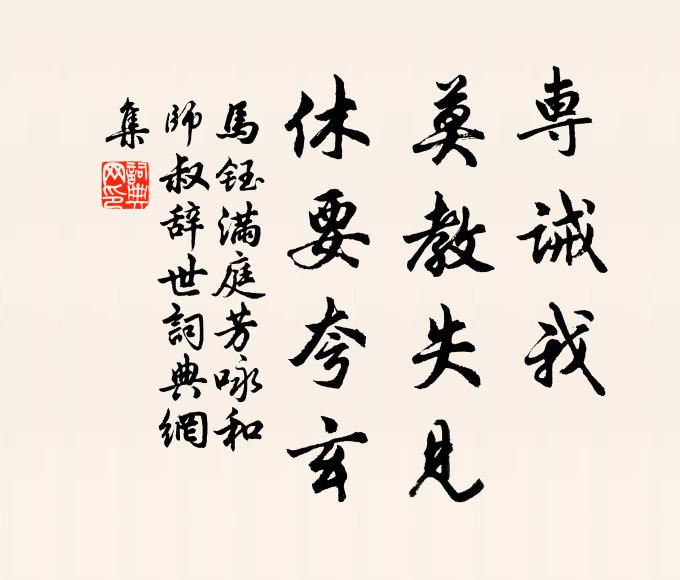 専誡我
莫教失見
休要夸玄
馬鈺满庭芳咏和
師叔辞世詞典網
集
詞典
网印